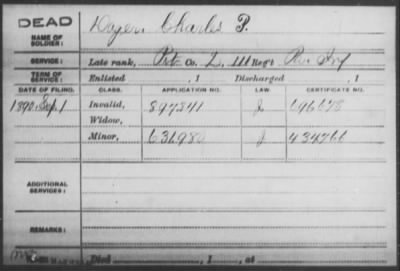 DEAD
NAME OF SOLDIER: Charles P.
SERVICE: Late rank, Pvt Co. I, 111 Reg't Pa. Inf
TERM OF SERVICE: Enlisted , 1 Discharged , 1
DATE OF FILING. CLASS. APPLICATION NO. LAW. CERTIFICATE NO.
1890. Sep. 1 Invalid, 897341 J
Widow,
Minor, 631980 J
ADDITIONAL SERVICES:
REMARKS:
Died , 1 , at